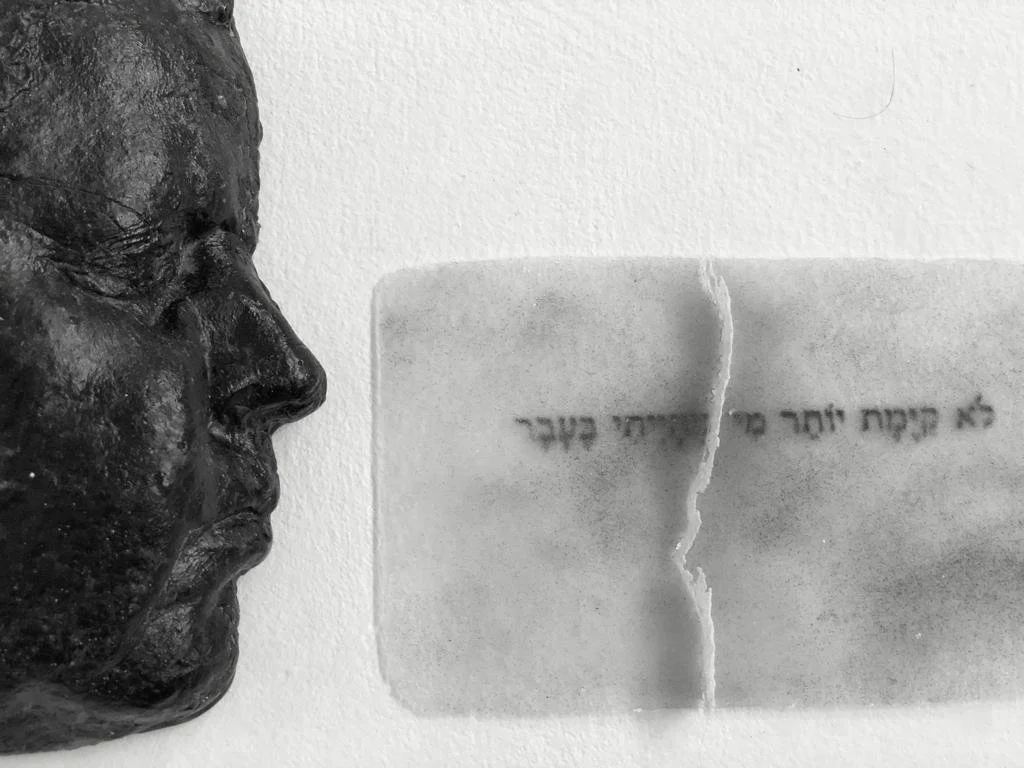 לֹא קַיֶּמֶת יוֹתֵר מִי שֶׁהָיִיתִי בֶּעָבָר